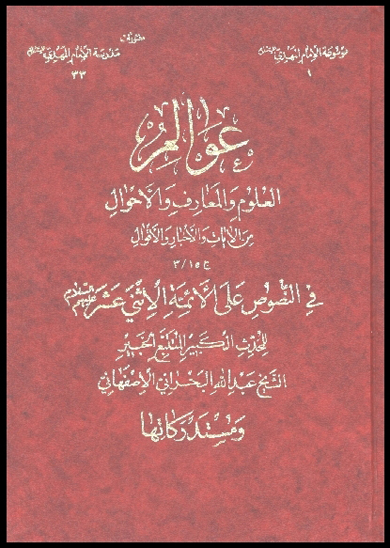 موسوعة الإمام المهدي عليه السلام
١
منشورات
مدرسة الإمام المهدي عليه السلام
٣٣
عوالم
العلوم والمعارف والأحوال
من الآيات والأخبار والأقوال
ج ١٥ / ٣
في النصوص على الأئمة الاثني عشر عليهم السلام
للمحدث الكبير المتتبع الخبير
الشيخ عبد الله البحراني الإصفهاني
ومستدركاتها